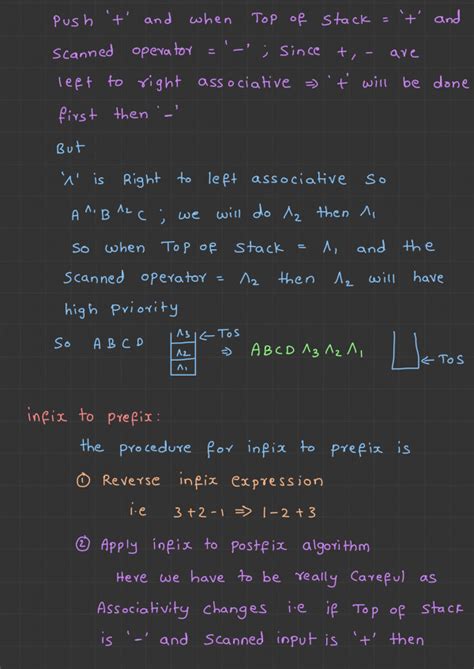 Push '+' and when Top of Stack = '+' and
Scanned operator = '-' ; Since +, - are
left to right associative ⇒ '+' will be done
first then '-'
But
'^' is Right to left associative So
A ^₁ B ^₂ C ; we will do ^₂ then ^₁
So when Top of Stack = ^₁ and the
Scanned operator = ^₂ then ^₂ will have
high Priority
So A B C D ^₃ ^₂ ^₁ ← TOS ⇒ A B C D ^₃ ^₂ ^₁ ← TOS
infix to prefix:
the procedure for infix to prefix is
① Reverse infix expression
i.e 3+2-1 ⇒ 1-2+3
② Apply infix to postfix algorithm
Here we have to be really Careful as
Associativity changes i.e if Top of stack
is '-' and Scanned input is '+' then